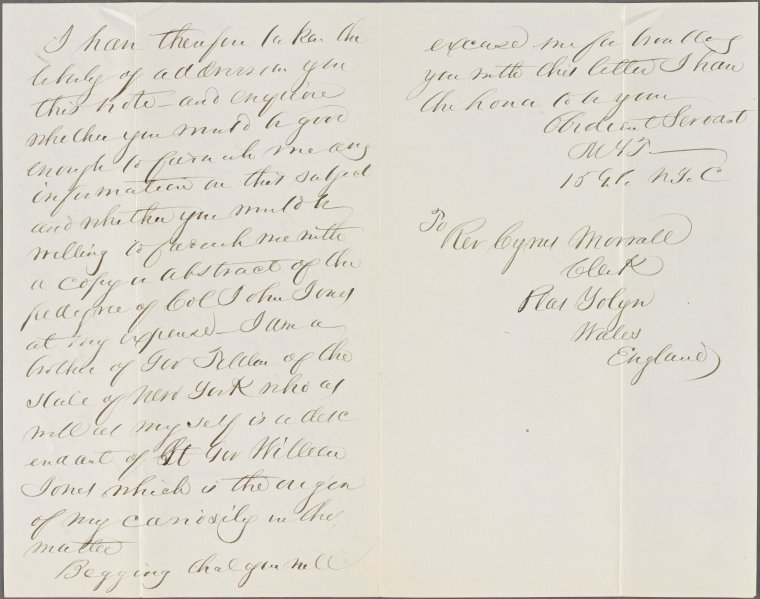 I have therefore taken the
liberty of address on you
this note - and enquire
whether you would be good
enough to furnish me any
information on this subject
and whether you would be
willing to furnish me with
a copy or abstract of the
pedigree of Col John Jones
at my expense - I am a
brother of Gov Tilden of the
State of New York who as
well as my self is a desc
endant of Lt Gov William
Jones which is the origin
of my curiosity in the
matter
Begging that you will
excuse me for troubling
you with this letter I have
the honor to be your
Obedient Servant
MYT
15 G.P. N.Y.C
To
Rev Cyrus Morrall
Clerk
Plas Yolyn
Wales
England